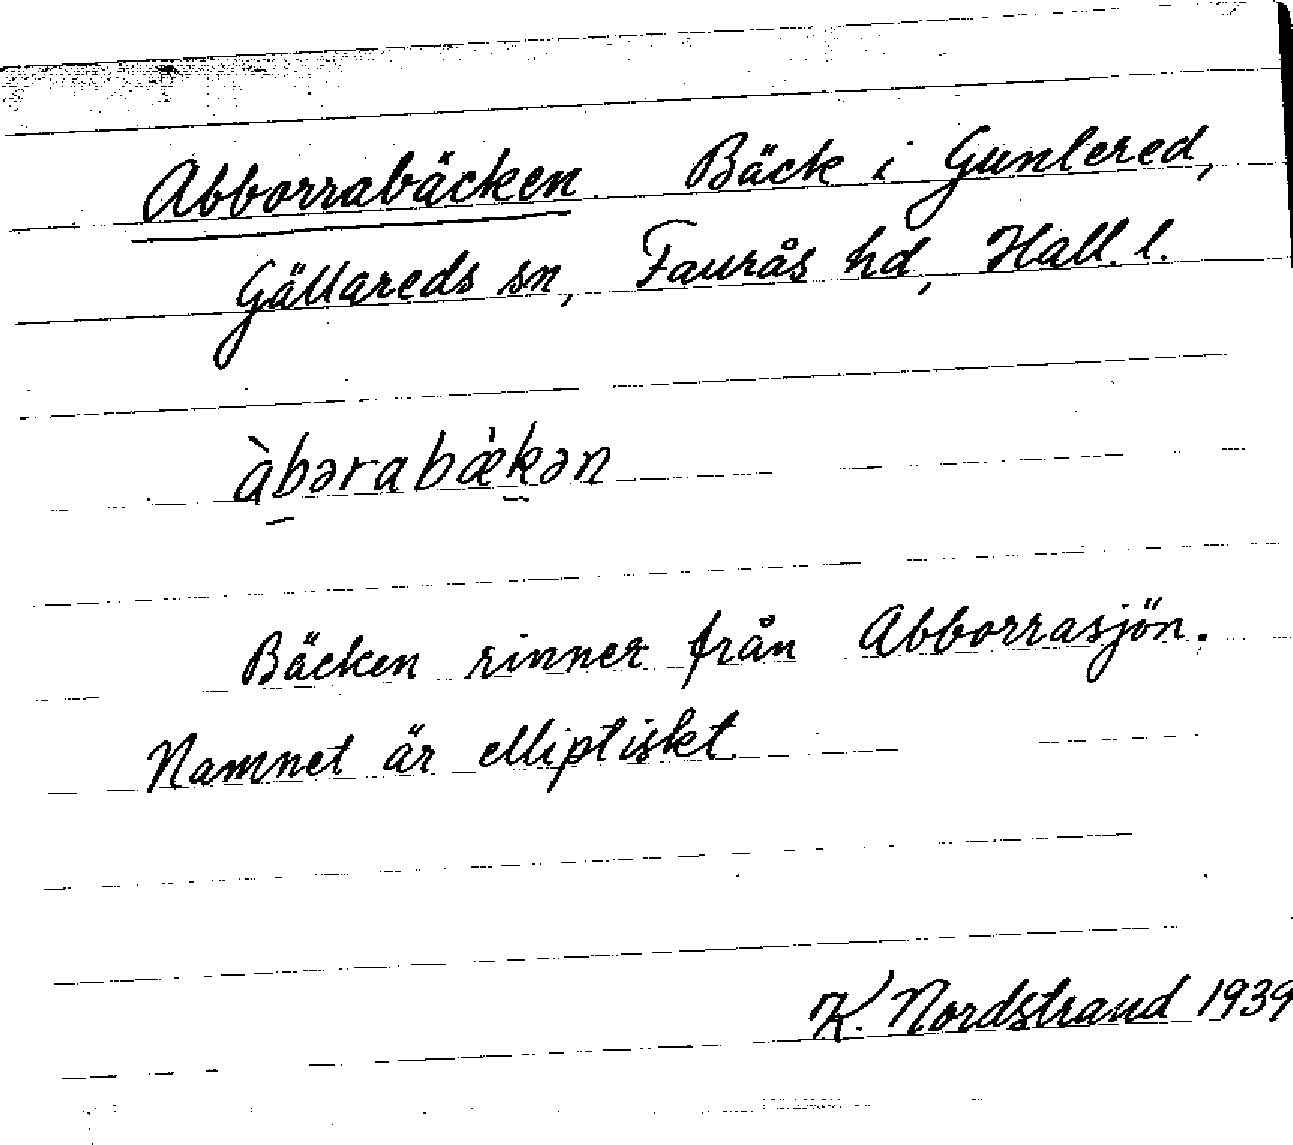 Abborrabäcken Bäck i Gunlered,
Gällareds sn, Faurås hd, Hall. l.
àbərabæ̀kən
Bäcken rinner från Abborrasjön.
Namnet är elliptiskt
K. Nordstrand 1939